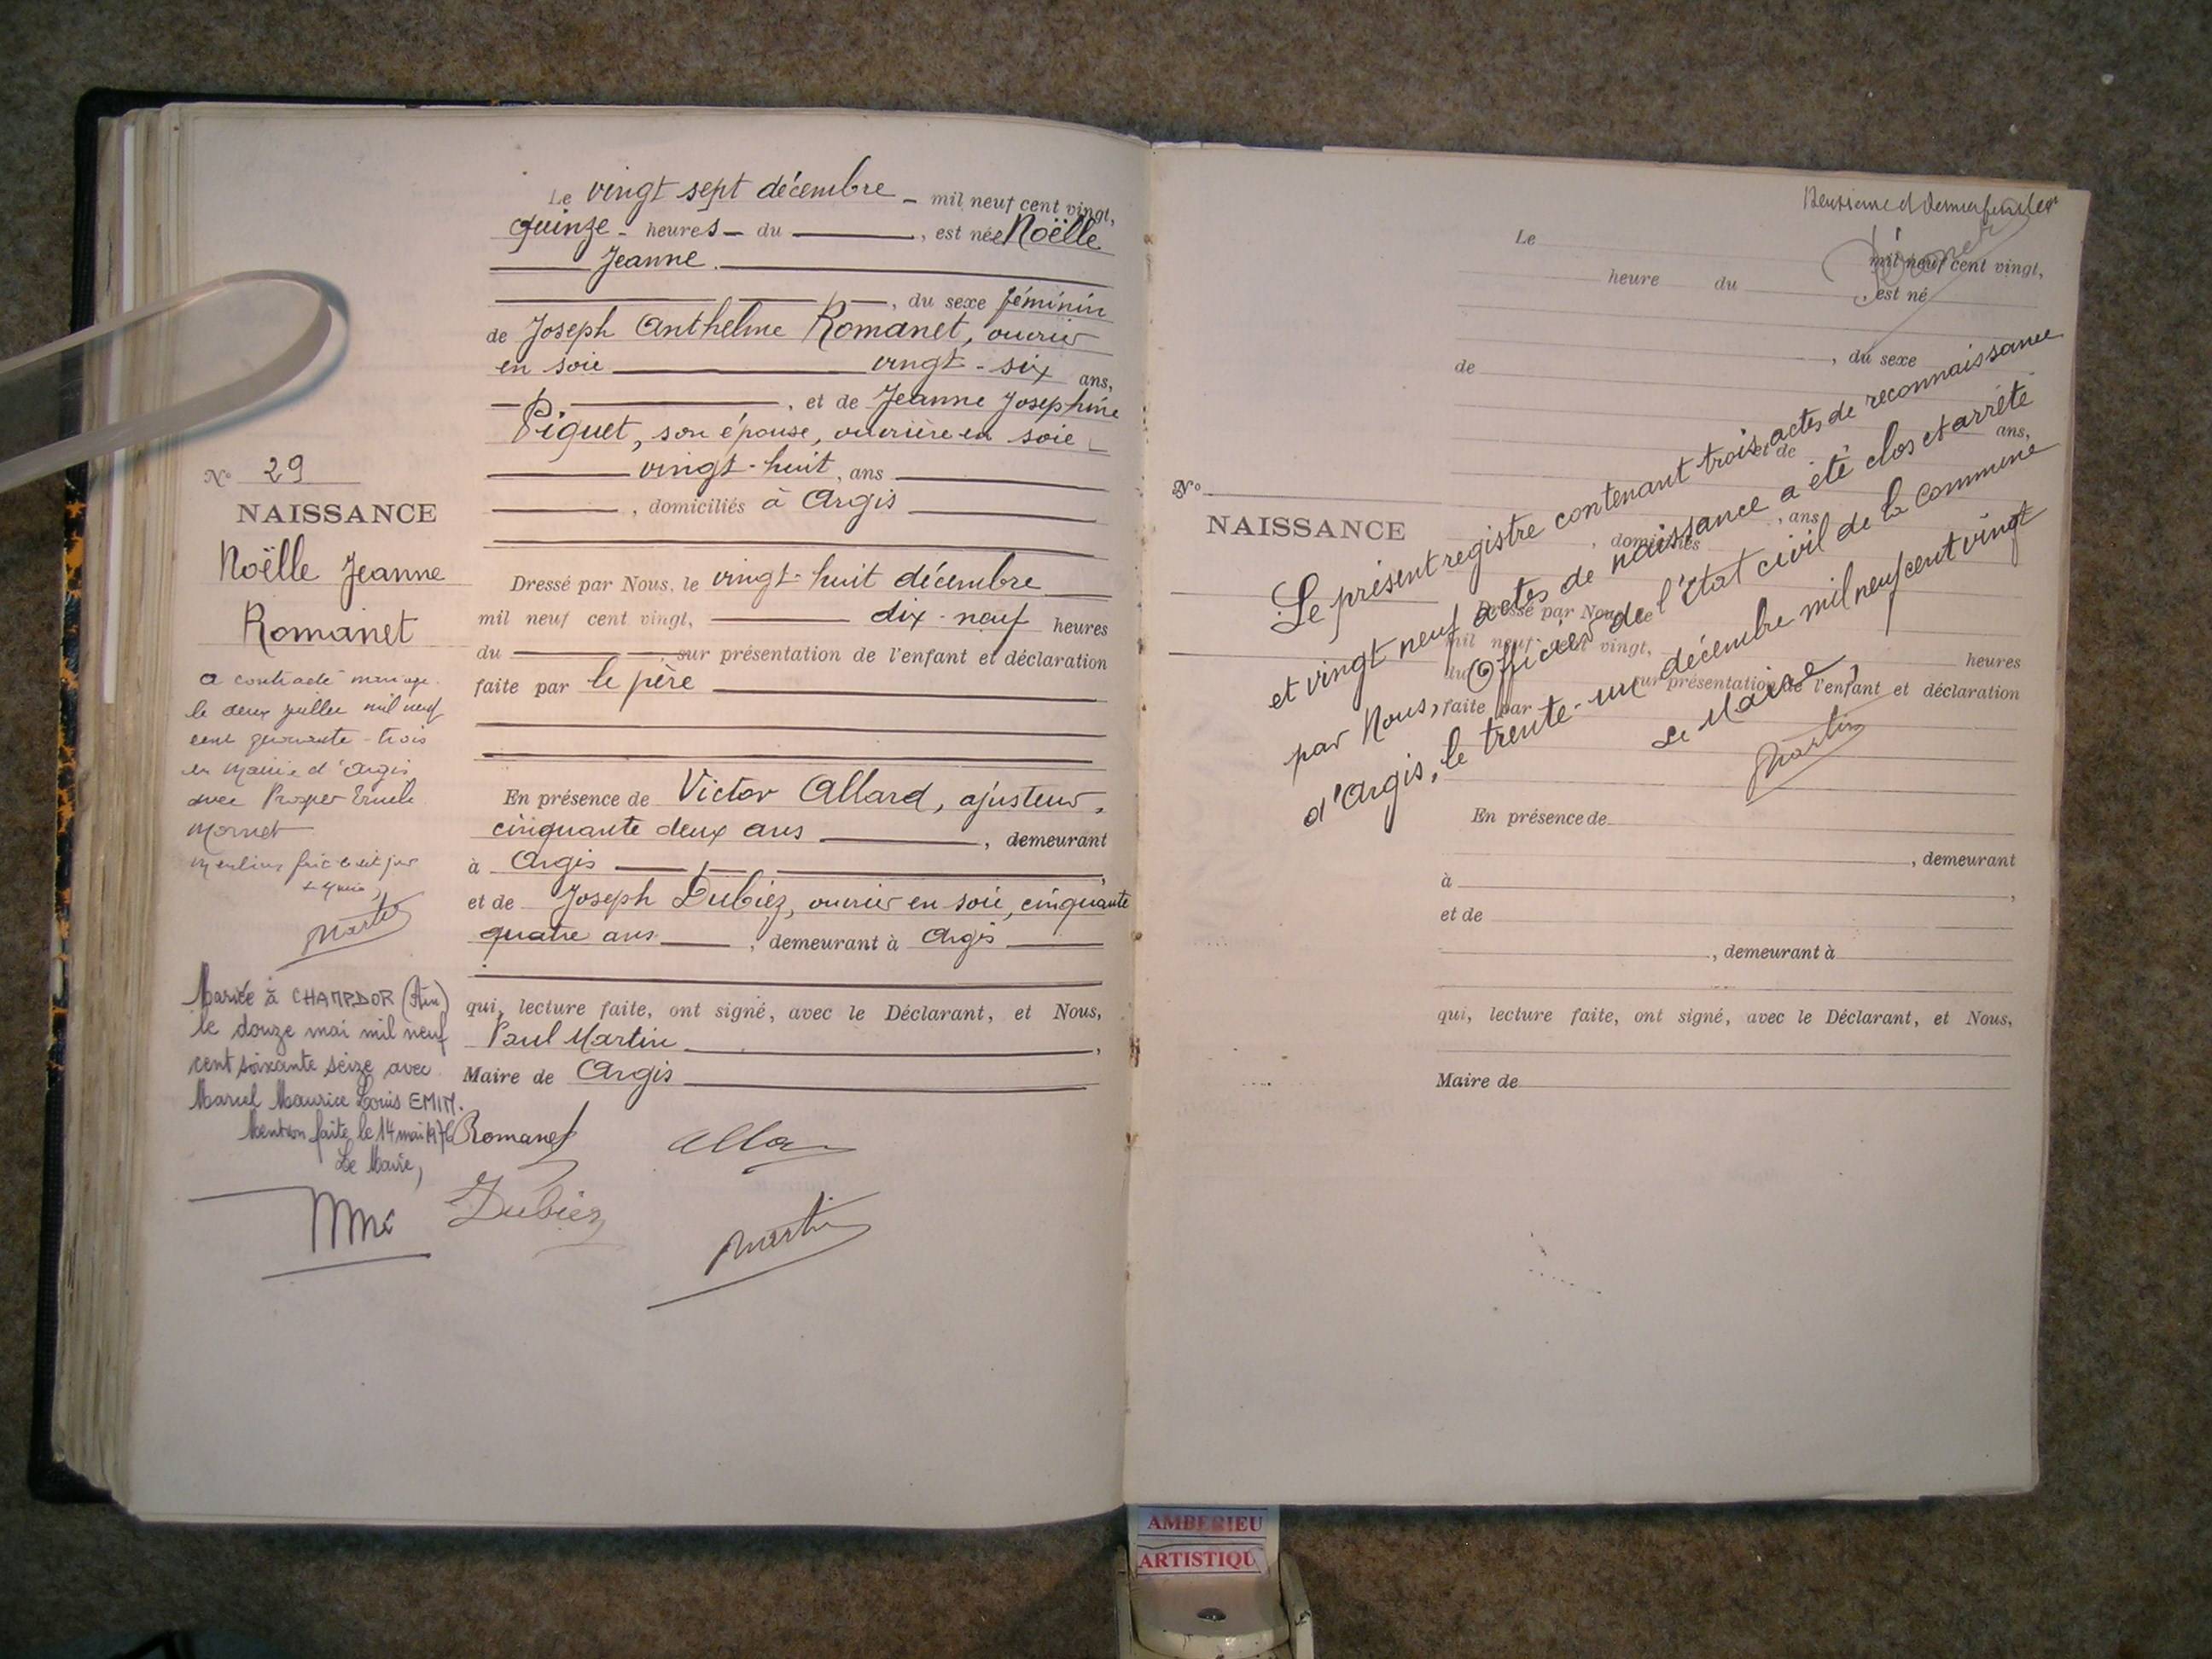 Le vingt sept décembre _ mil neuf cent vingt,
quinze - heures - du ______, est née Noëlle
Jeanne.
, du sexe féminin
de Joseph Anthelme Romanet, ouvrier
en soie ______ vingt-six ans,
, et de Jeanne Joséphine
Piguet, son épouse, ouvrière en soie
vingt-huit, ans
, domiciliés à Argis
Nº 29
NAISSANCE
Noëlle Jeanne
Romanet
a contracté mariage
le deux juillet mil neuf
cent quarante-trois
en Mairie d'Argis
avec Prosper Emile
Mornet
Mention faite le
Martin
Mariée à CHAMPDOR (Ain)
le douze mai mil neuf
cent soixante seize avec
Marcel Maurice Louis EMIN.
Mention faite le 14 mai 1976
Le Maire,
Dressé par Nous, le vingt-huit décembre
mil neuf cent vingt, ______ dix-neuf heures
du ______ sur présentation de l'enfant et déclaration
faite par le père
En présence de Victor Allard, ajusteur,
cinquante deux ans ______, demeurant
à Argis ______,
et de Joseph Dubiez, ouvrier en soie, cinquante
quatre ans ______, demeurant à Argis
qui, lecture faite, ont signé, avec le Déclarant, et Nous,
Paul Martin ______,
Maire de Argis
Romanet
Allard
Dubiez
Martin
Deuxième et dernier feuillet
Le ______ mil neuf cent vingt,
heure du ______, est né
, du sexe
de
ans,
et de
, ans
, domiciliés
Nº
NAISSANCE
Dressé par Nous, le
mil neuf cent vingt, ______ heures
du ______ sur présentation de l'enfant et déclaration
faite par
Le présent registre contenant trois actes de reconnaissance
et vingt neuf actes de naissance a été clos et arrêté
par Nous, Officier de l'Etat civil de la Commune
d'Argis, le trente-un décembre mil neuf cent vingt
Le Maire,
Martin
En présence de
, demeurant
à ______,
et de
, demeurant à
qui, lecture faite, ont signé, avec le Déclarant, et Nous,
Maire de
AMBERIEU
ARTISTIQU